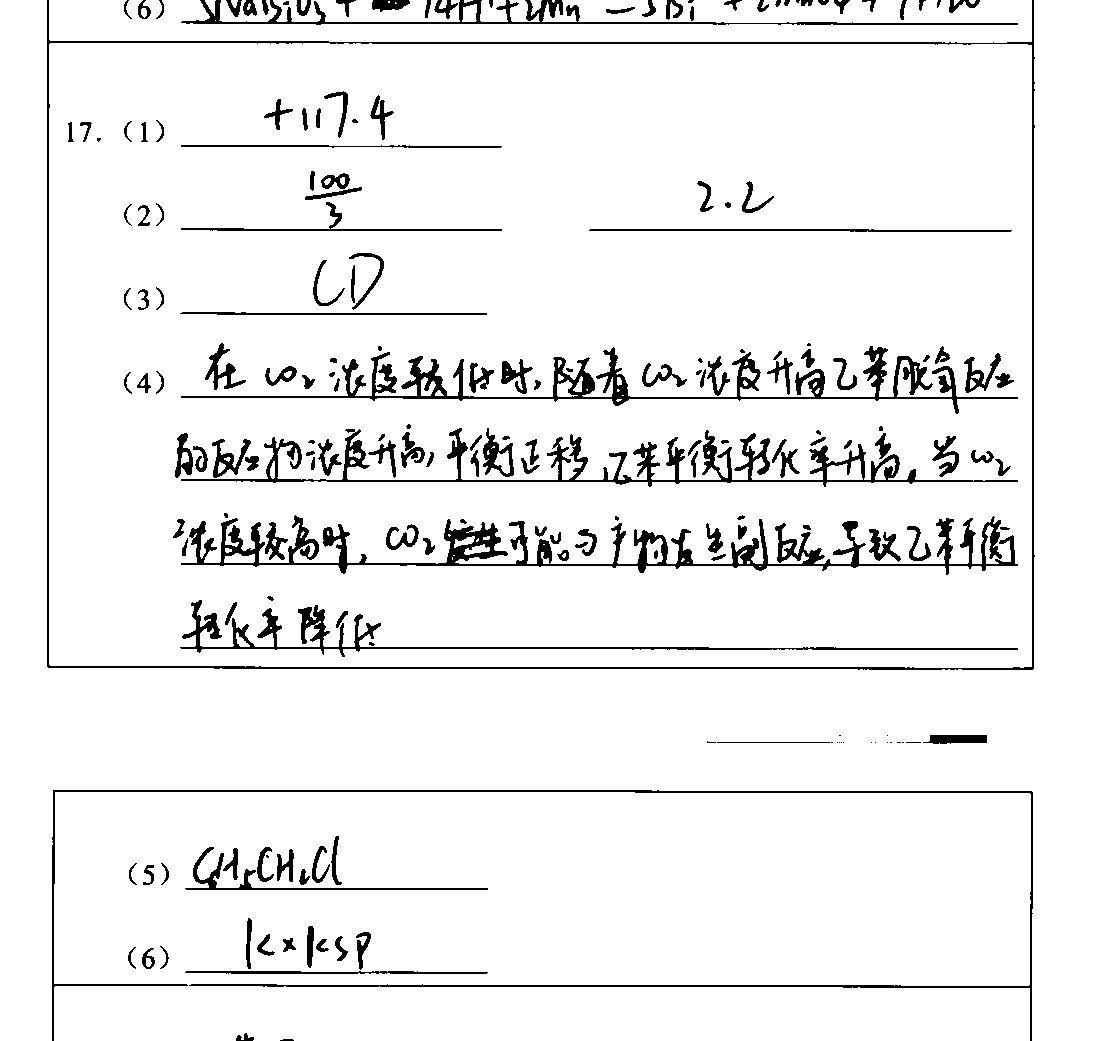 (6) 5NaBiO3 + 14H+ + 2Mn
17. (1) +117.4
(2) 100/3 2.2
(3) CD
(4) 在CO2浓度较低时,随着CO2浓度升高乙苯脱氢反应
的反应物浓度升高,平衡正移,乙苯平衡转化率升高。当CO2
浓度较高时,CO2可能与产物发生副反应,导致乙苯平衡
转化率降低
(5) C6H5CH2Cl
(6) K×Ksp